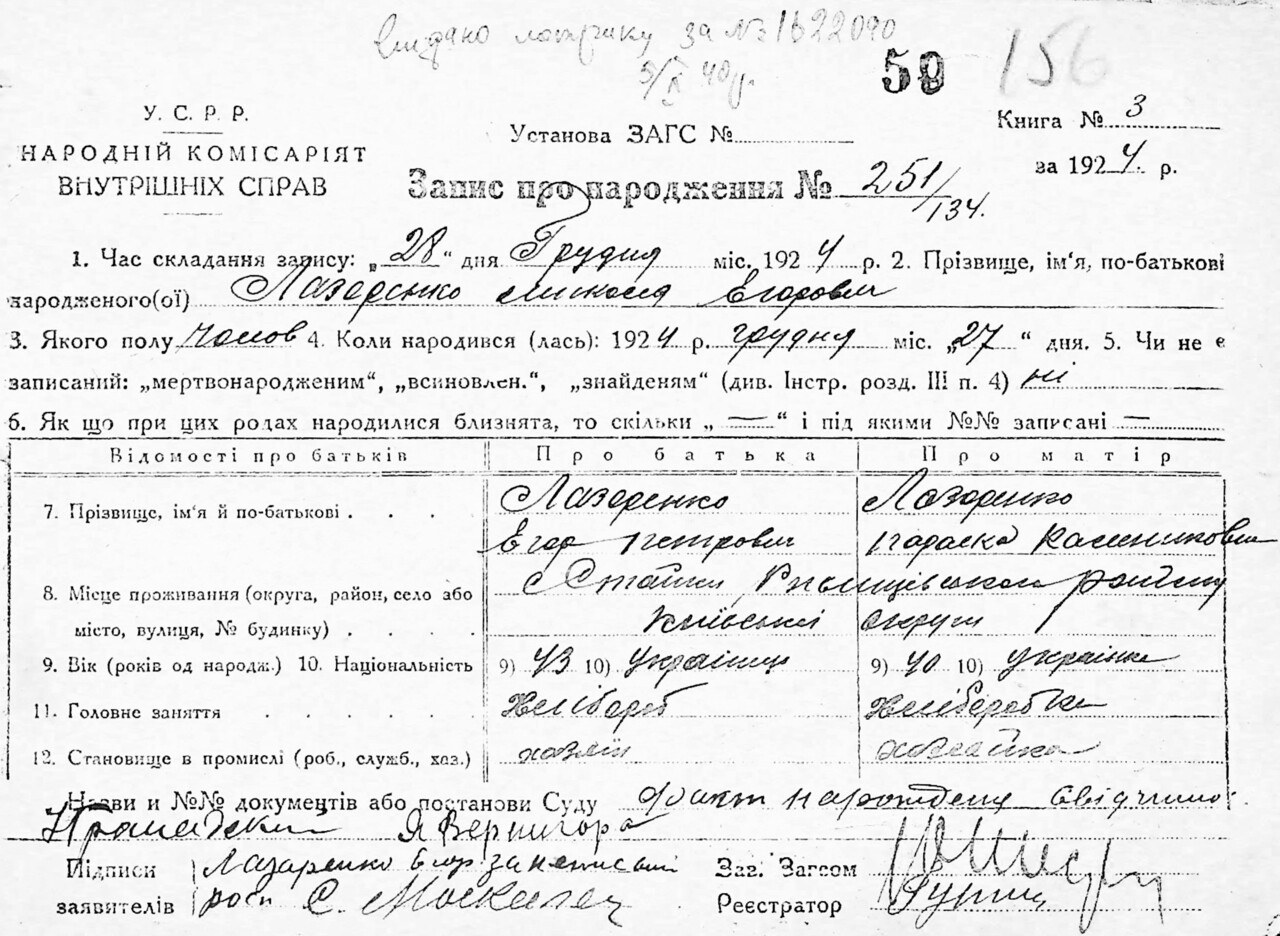 Видано за № 1622090
5/X 40 р.
59 156
У. С. Р. Р.
НАРОДНІЙ КОМІСАРІЯТ
ВНУТРІШНІХ СПРАВ
Установа ЗАГС №
Книга № 3
за 1924 р.
Запис про народження № 251/134.
1. Час складання запису: „28“ дня Грудня міс. 1924 р. 2. Прізвище, ім‘я, по-батькові
народженого(ої) Лазаренко Микола Егорович
3. Якого полу чолов 4. Коли народився (лась): 1924 р. грудня міс. „27“ дня. 5. Чи не є
записаний: „мертвонародженим“, „всиновлен.“, „знайденям“ (див. Інстр. розд. III п. 4) ні
6. Як що при цих родах народилися близнята, то скільки „—“ і під якими №№ записані —
Відомості про батьків Про батька Про матір
7. Прізвище, ім‘я й по-батькові . . . . Лазаренко Лазаренко
Егор Петрович Параска
8. Місце проживання (округа, район, село або с Стайки Ржищівського району
місто, вулиця, № будинку) . . . . Київської округи
9. Вік (років од народж.) 10. Національність 9) 43 10) Українець 9) 40 10) українка
11. Головне заняття . . . . . . Хлібороб Хліборобка
12. Становище в промислі (роб., служб., хаз.) хазяїн хозяйка
Назви и №№ документів або постанови Суду Факт народження свідчимо
Я Вернигора
Підписи Лазаренко Егор за неписьмен
заявителів росп С. Москалец
Заг. Загсом
Реєстратор